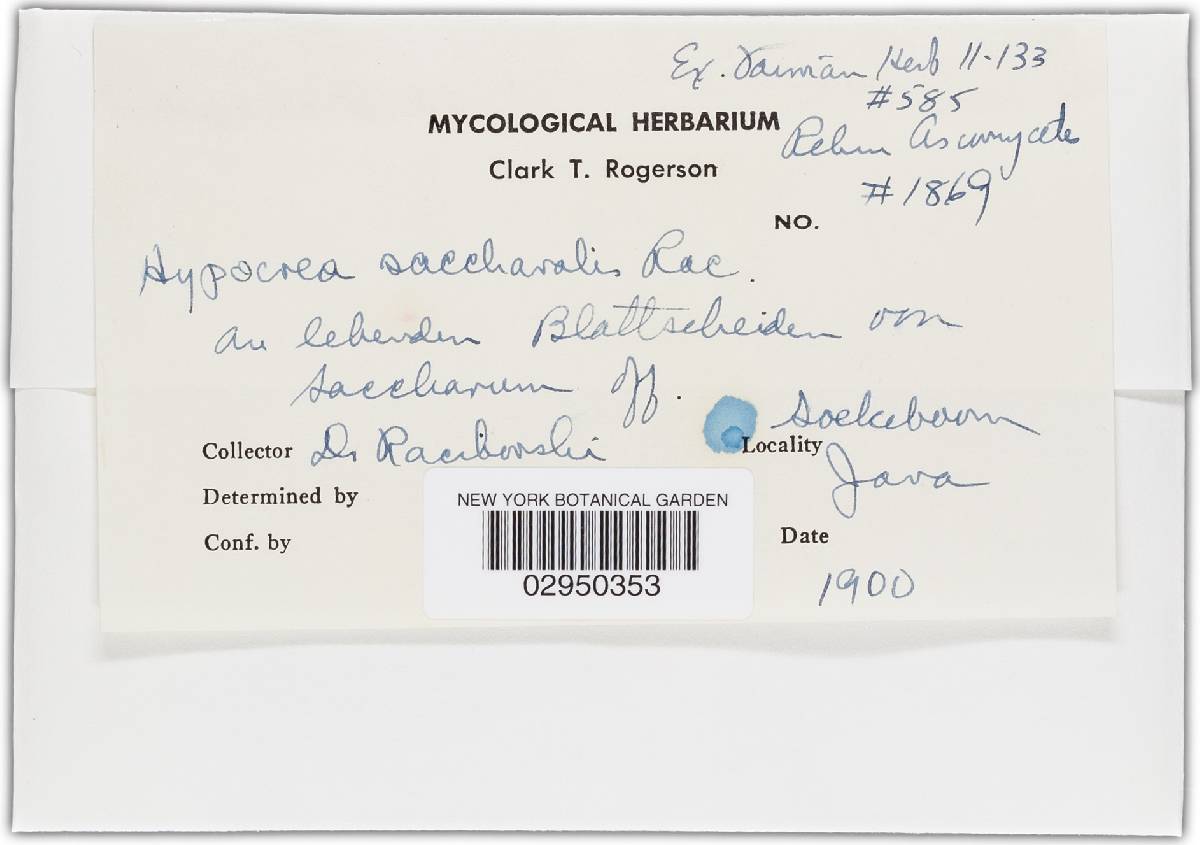 Ex. Vainman Herb 11-133
#585
MYCOLOGICAL HERBARIUM
Rehm Ascomycetes
Clark T. Rogerson
#1869
NO.
Hypocrea saccharalis Rac.
an lebenden Blattscheiden von
Saccharum off.
Collector Dr Raciborski
Locality Soekeboom
Java
Determined by
NEW YORK BOTANICAL GARDEN
Conf. by
Date
1900
02950353